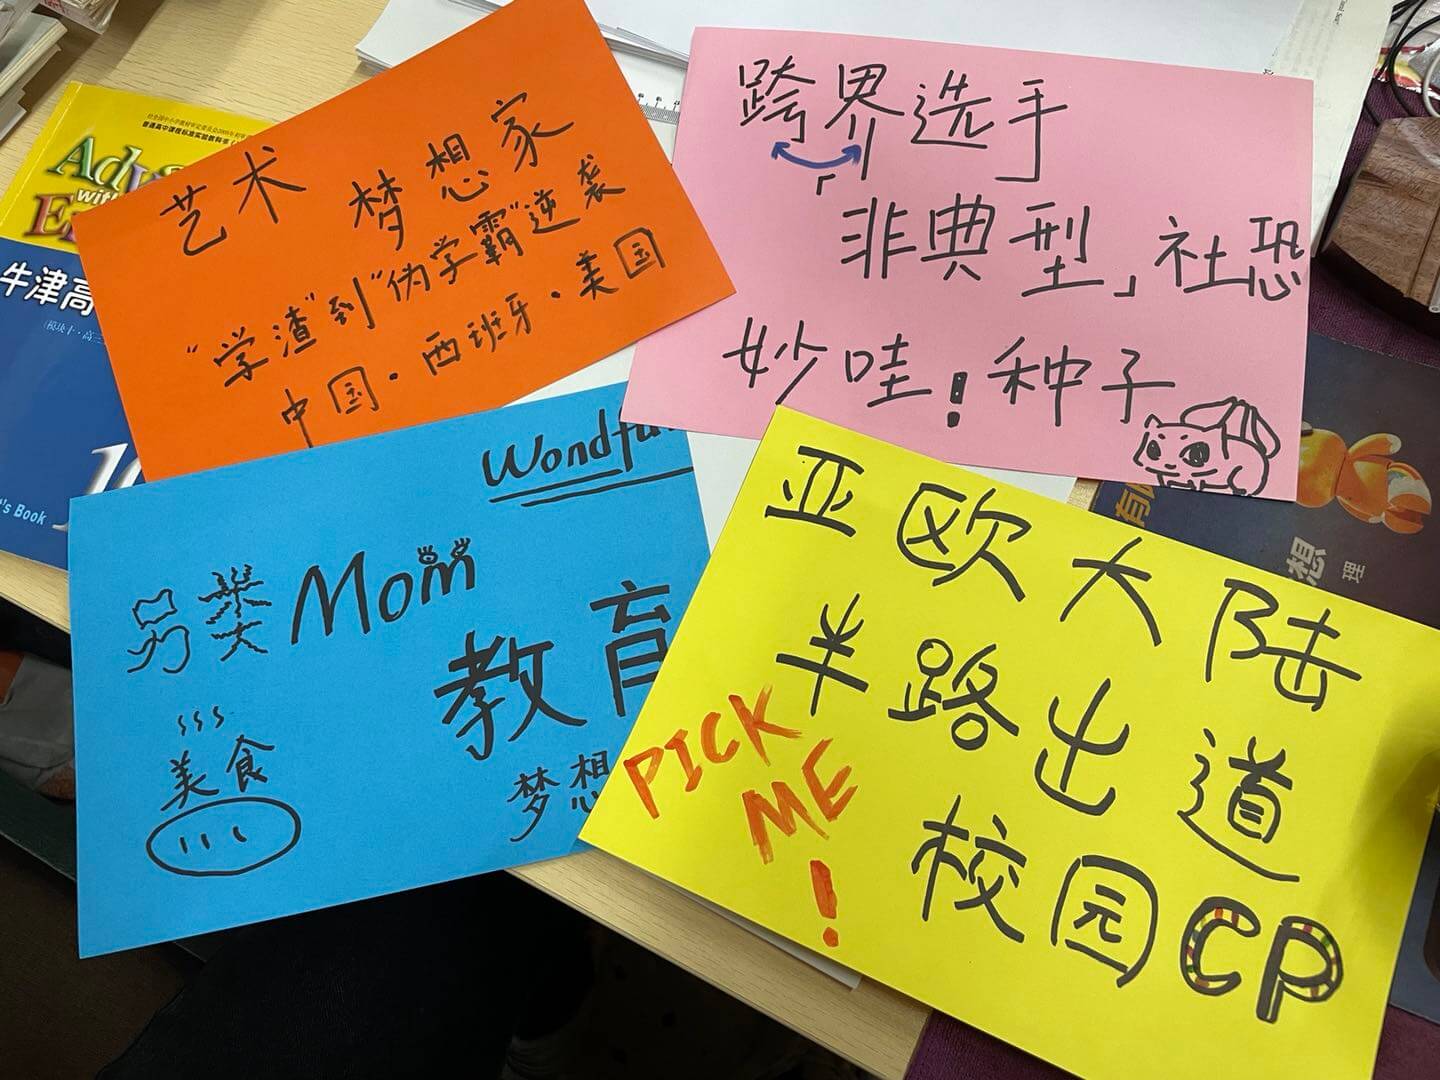 艺术 梦想家
"学渣"到"伪学霸"逆袭
中国·西班牙·美国
跨界选手
「非典型」社恐
妙哇!种子
Mom
教育
美食
梦想
亚欧大陆
半路出道
校园CP
PICK
ME!
普通高中课程标准实验教科书
Adva
with
E
牛津高
's Book
想
理